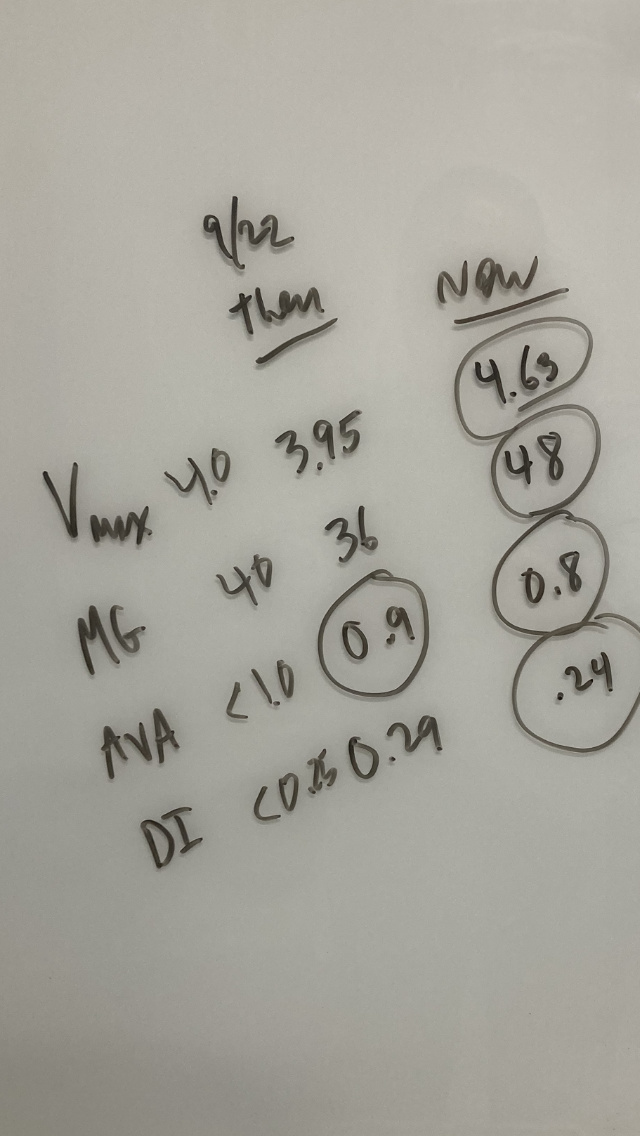 9/22
then NOW
Vmax 4.0 3.95 4.63
MG 40 36 48
AVA <1.0 0.9 0.8
DI <0.25 0.29 .24